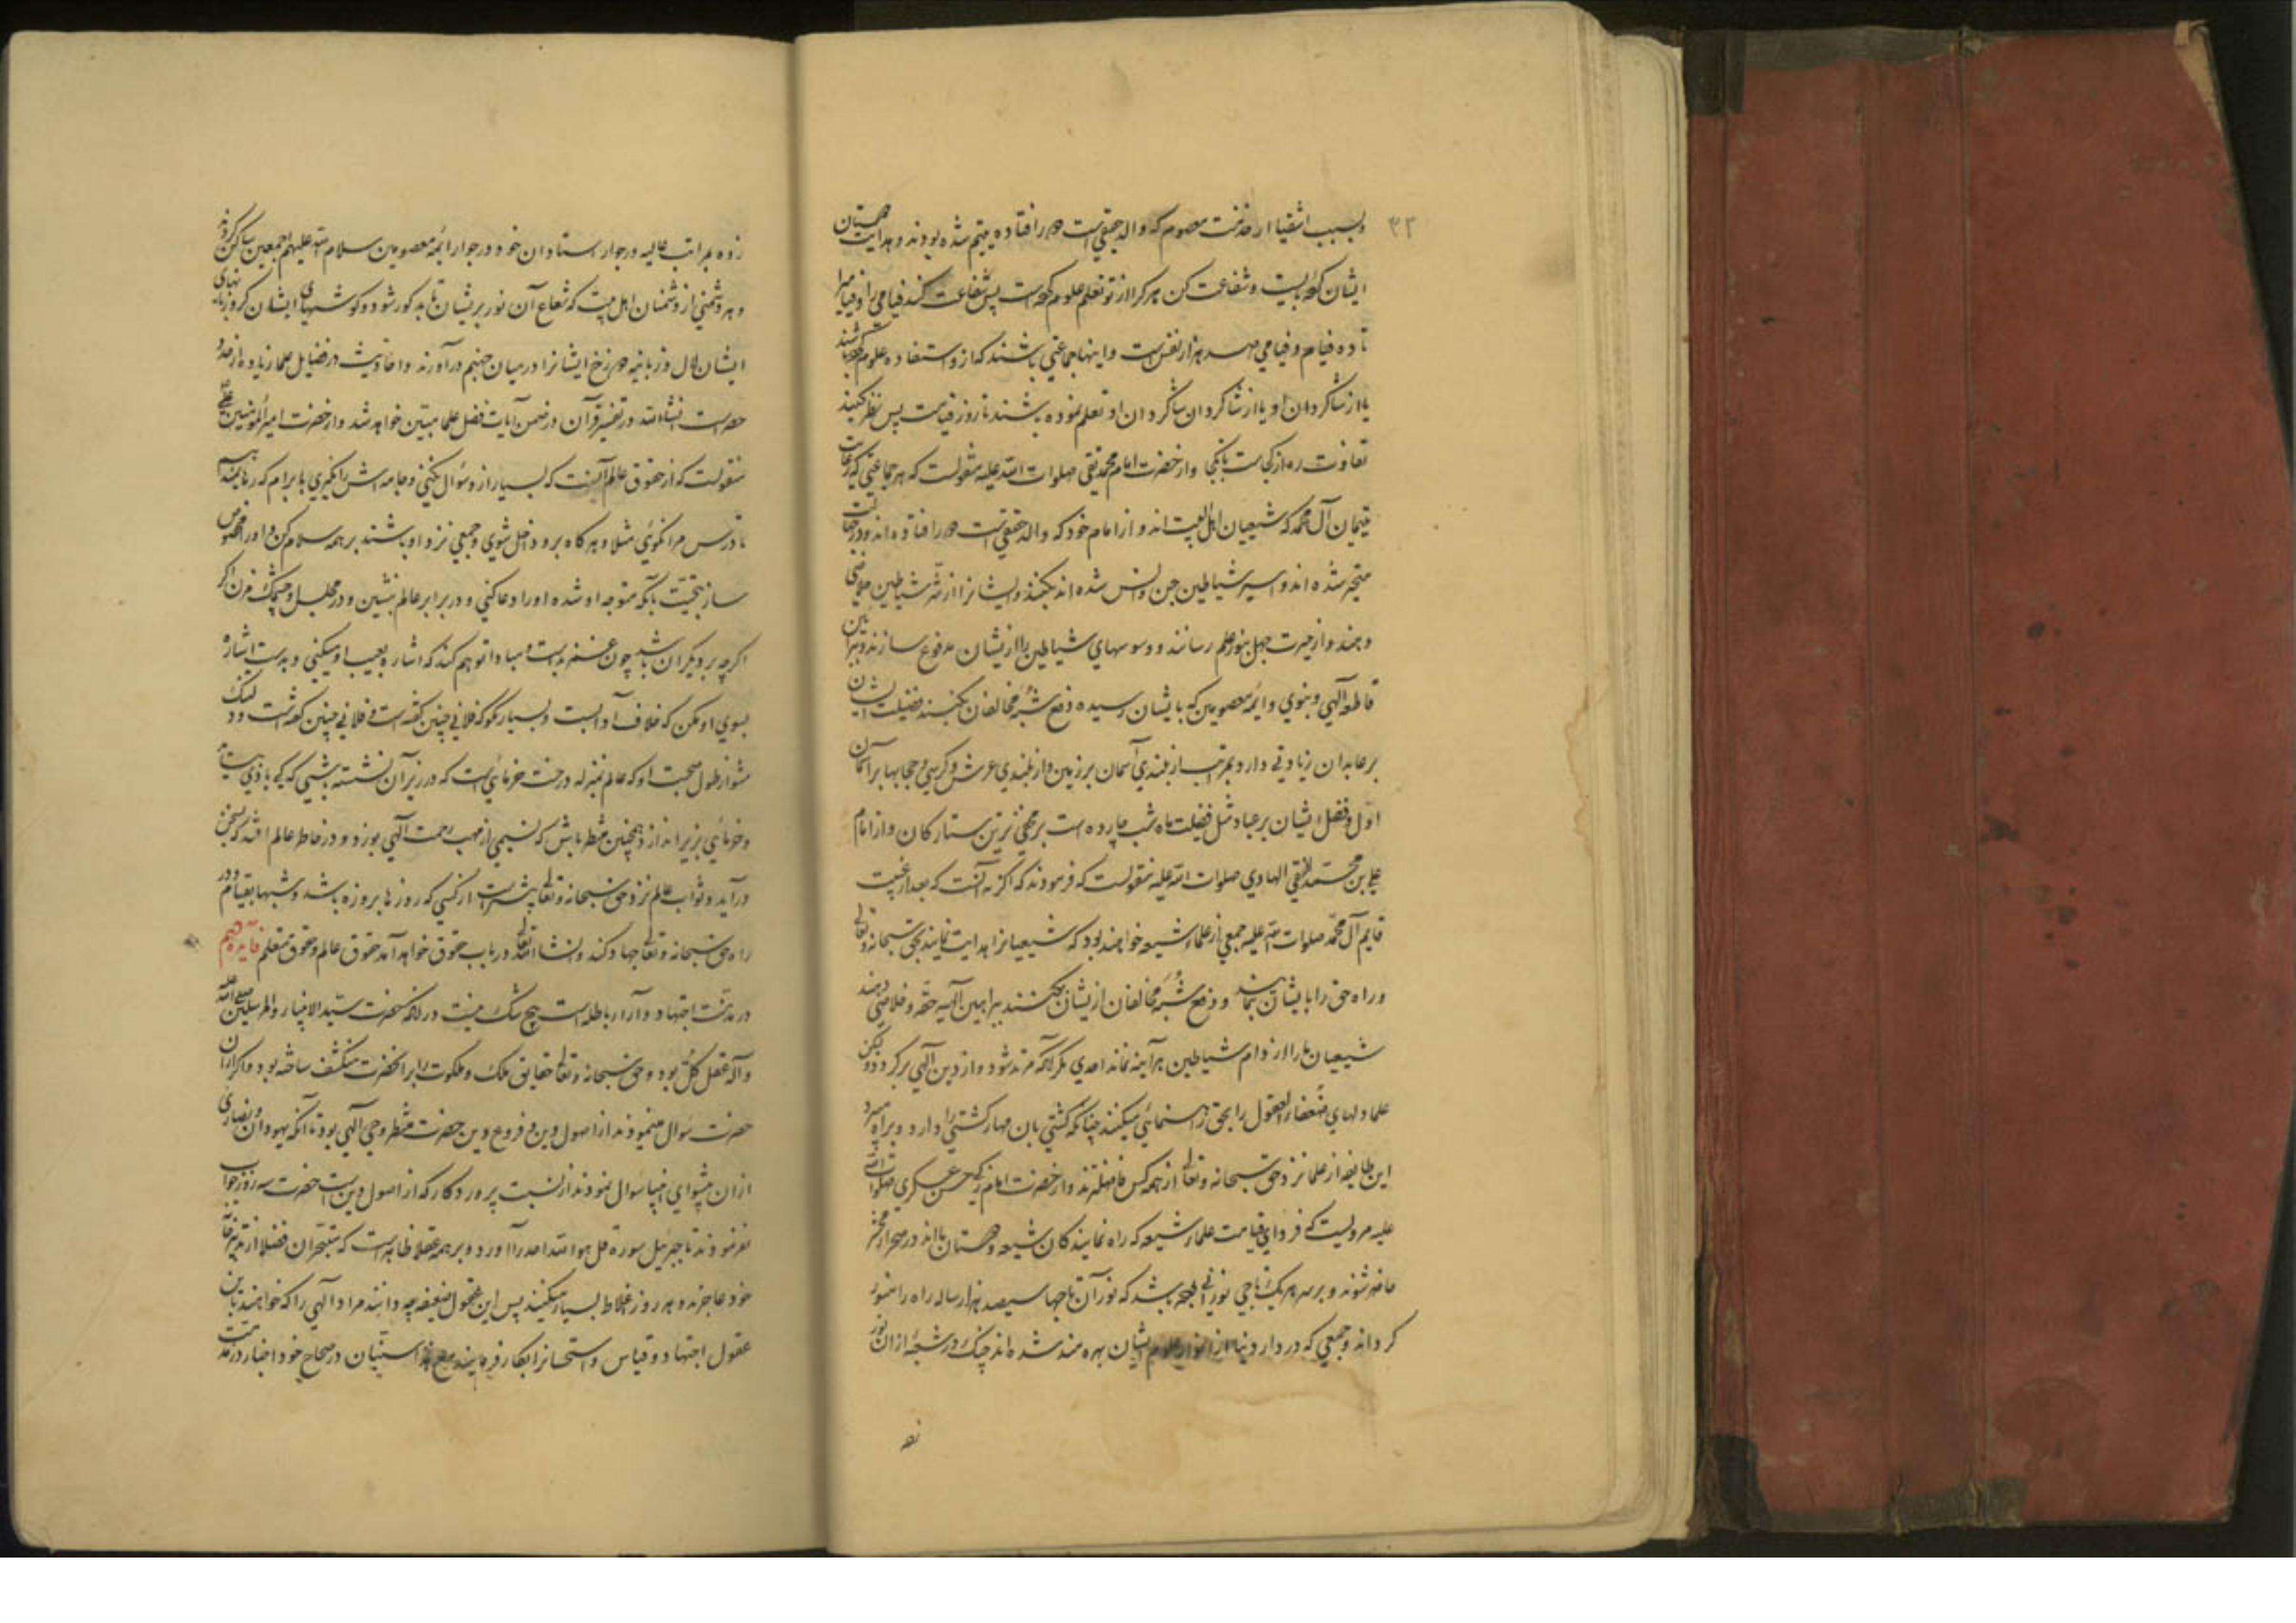 ۴۲
و بسبب اشقیا از خدمت معصوم که والد حقیقیست دور افتاده یتیم شده بودند و هدایت
ایشان کرده بایست و شفاعت کن هر کرا از تو تعلم علوم کرده است پس شفاعت کند فیامی را و فیامی را
تا ده فیام و فیامی صد هزار نفس است و اینها جماعتی باشند که از و استفاده علوم کرده باشند
یا از شاگردان او یا از شاگردان شاگردان او تعلم نموده باشند تا روز قیامت پس نظر کنید
تفاوت ره از کجاست تا بکجا و از حضرت امام محمد تقی صلوات الله علیه منقولست که هر جماعتی که رعایت
یتیمان آل محمد که شیعیان اهل البیت اند و از امام خود که والد حقیقیست دور افتاده اند و در جهالت
متحیر شده اند و اسیر شیاطین جن و انس شده اند بکنند و ایشانرا از شر شیاطین خلاصی
دهند و از حیرت جهل بنور علم رسانند و وسوسهای شیاطین را از ایشان مدفوع سازند و ببراهین
قاطعه آلهی و نبوی و ائمه معصومین که بایشان رسیده دفع شبه مخالفان بکنند فضیلت ایشان
بر عابدان زیادتی دارد بمراتب از بلندی آسمان بر زمین و از بلندی عرش و کرسی و حجابها بر آسمان
اول و فضل ایشان بر عباد مثل فضیلت ماه شب چهارده است بر مخفی ترین ستارگان و از امام
علی بن محمد النقی الهادی صلوات الله علیه منقولست که فرمودند که اگر نه آنست که بعد از غیبت
قایم آل محمد صلوات الله علیه جمعی از علماء شیعه خواهند بود که شیعیانرا هدایت نمایند بحق سبحانه و تعالی
و راه حق را بایشان نمایند و دفع شبه مخالفان از ایشان بکنند ببراهین آلهیه حقه و خلاصی دهند
شیعیان ما را از دام شیاطین هر آینه نماند احدی مگر آنکه مرتد شود و از دین آلهی برگردد و لیکن
علما دلهای ضعفاء العقول را بحق رهنمائی میکنند چنانکه کشتی بان مهار کشتی را دارد و براه میبرد
این طایفه از علما نزد حق سبحانه و تعالی از همه کس فاضلترند و از حضرت امام حسن عسکری صلوات الله
علیه مرویست که فردای قیامت علماء شیعه که راه نمایندگان شیعه و دوستان مااند در صحراء محشر
حاضر شوند و بر سر هر یک تاجی نورانی بوده باشد که نور آن تاجها سیصد هزار ساله راه را منور
گرداند و جمعی که در دار دنیا از انوار علوم ایشان بهره مند شده اند چنگ در شعبه از آن نور
زده بمراتب عالیه در جوار استادان خود در جوار ائمه معصومین سلام الله علیهم اجمعین ساکن گردند
و هر دشمنی از دشمنان اهل بیت که شعاع آن نور بر ایشان تابد کور شود و گوشهای ایشان کر و زبانهای
ایشان لال و زبانیه دوزخ ایشانرا در میان جهنم درآورند و احادیث در فضایل علما زیاده از حد و
حصر است انشاء الله در تفسیر قرآن در ضمن آیات فضل علما مبین خواهد شد و از حضرت امیرالمؤمنین علی
منقولست که از حقوق عالم آنست که بسیار از و سؤال نکنی و جامه اش را نگیری بابرام که
تا درس مرا نگوئی مثلا و هر گاه برو داخل شوی و جمعی نزد او باشند بر همه سلام کن و او را مخصوص
ساز بتحیت بآنکه متوجه او شده او را دعا کنی و در برابر عالم بنشین و در مجلس او چشمک مزن اگر
اگر چه بر دیگران باشد چون غمز بد است و مبادا توهم کند که اشاره بعیب او میکنی و بدست اشاره
بسوی او مکن که خلاف آدابست و بسیار مگو که فلانی چنین گفته است و فلانی چنین گفته است و دلتنگ
مشو از طول صحبت او که عالم بمنزله درخت خرمائیست که در زیر آن نشسته باشی که کی بادی بیاید
و خرمائی بزیر اندازد همچنین منتظر باش که نسیمی از مهب رحمت آلهی بوزد و در خاطر عالم افتد که بسخن
درآید و ثواب عالم نزد حق سبحانه و تعالی بیشتر است از کسی که روزها بروزه باشد و شبها بقیام و در
راه حق سبحانه و تعالی جهاد کند و انشاء الله تعالی در باب حقوق خواهد آمد حقوق عالم و حقوق متعلم فایده دهم
در مذمت اجتهاد و آراء باطله است هیچ شک نیست در آنکه حضرت سید الانبیاء و المرسلین صلی الله علیه
و آله عقل کل بود و حق سبحانه و تعالی حقایق ملک و ملکوت را بر آنحضرت منکشف ساخته بود و اگر از آن
حضرت سؤال مینمودند از اصول دین و فروع دین حضرت منتظر وحی آلهی بود تا آنکه یهودان و نصاری
از آن پیشوای انبیا سؤال نمودند از نسبت پروردگار که از اصول دین است حضرت سه روز جواب
نفرمودند تا جبرئیل سوره قل هو الله احد را آورد و بر همه عقلا ظاهر است که متبحران فضلا از تدبیر
خود عاجزند و هر روز غلاط بسیار میکنند پس این عقول ضعیفه چه دانند مراد آلهی را که خواهند باین
عقول اجتهاد و قیاس و استحسانرا بکار فرمایند مع هذا سنیان در صحاح خود اخبار در مذمت